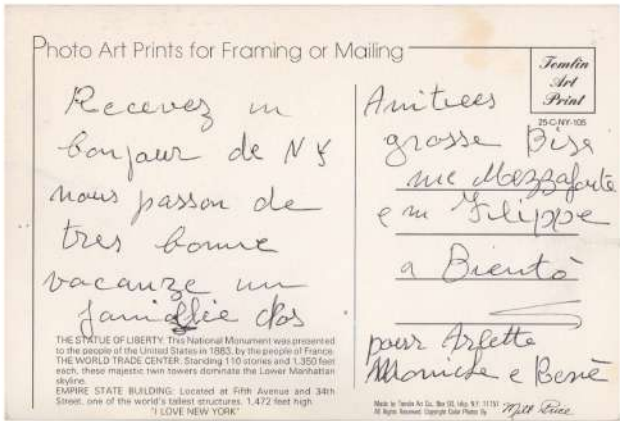 Photo Art Prints for Framing or Mailing
Recevez un
bonjour de NY
nous passon de
tres bonne
vacanze un
famiglie
THE STATUE OF LIBERTY: This National Monument was presented
to the people of the United States in 1883, by the people of France.
THE WORLD TRADE CENTER: Standing 110 stories and 1,350 feet
each, these majestic twin towers dominate the Lower Manhattan
skyline.
EMPIRE STATE BUILDING: Located at Fifth Avenue and 34th
Street, one of the world's tallest structures. 1,472 feet high
"I LOVE NEW YORK"
Temlin
Art
Print
25-C-NY-105
Amitiees
grosse Bise
me Mezzaforte
e m Filippe
a Bientò
pour Arlette
Moniche e
Made by Temlin Art Co., Box 00, Islip, N.Y. 11751
All Rights Reserved. Copyright Color Photos By Milt Price